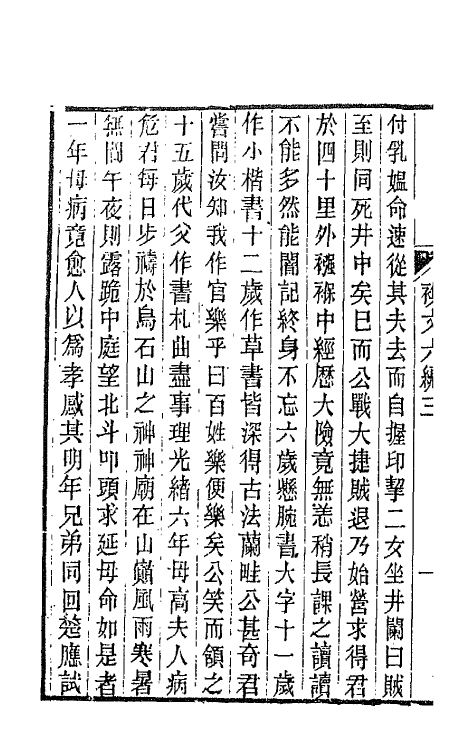 襍文六編三
一
付乳媼命速從其夫去而自握印挈二女坐井闌曰賊
至則同死井中矣已而公戰大捷賊退乃始營求得君
於四十里外襁褓中經歷大險竟無恙稍長課之讀讀
不能多然能闇記終身不忘六歲懸腕書大字十一歲
作小楷書十二歲作草書皆深得古法蘭畦公甚奇君
嘗問汝知我作官樂乎曰百姓樂便樂矣公笑而頷之
十五歲代父作書札曲盡事理光緒六年母高夫人病
危君每日步禱於烏石山之神神廟在山巔風雨寒暑
無間午夜則露跪中庭望北斗叩頭求延母命如是者
一年母病竟愈人以為孝感其明年兄弟同回楚應試